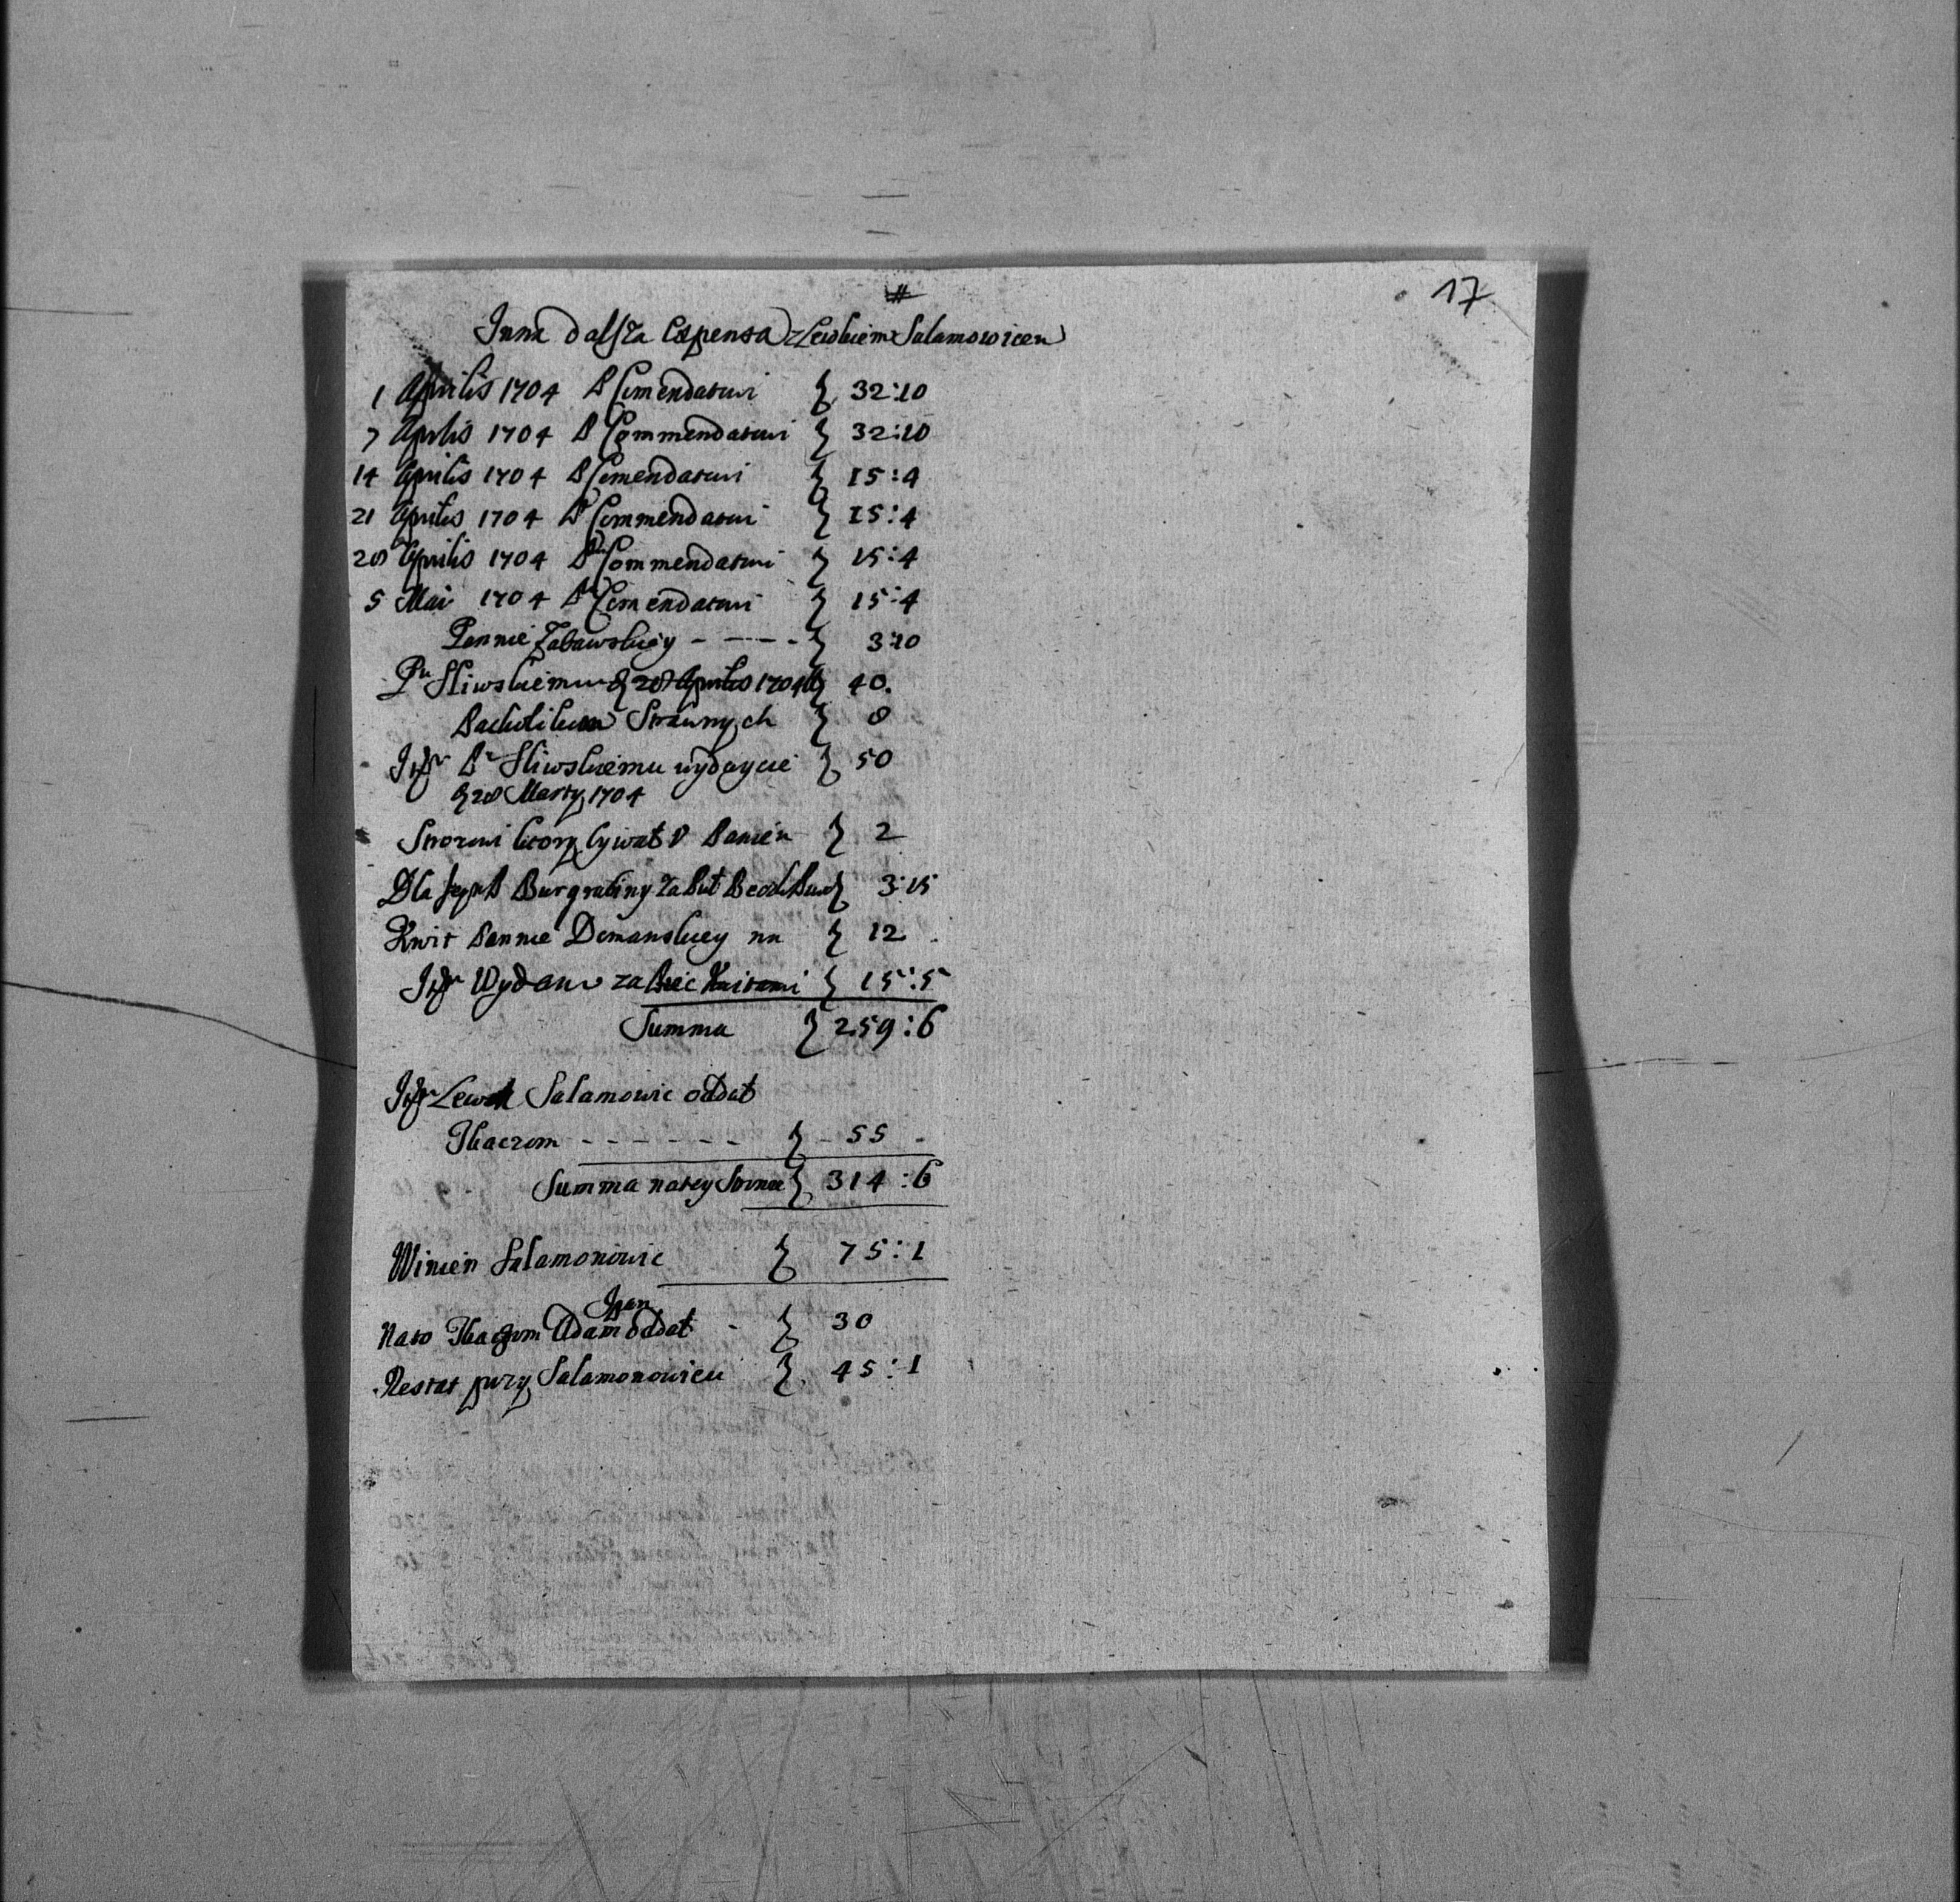 17
#
Inna dalsza Expensa z Lewkiem Salamowicem
1 Aprilis 1704 P Comendatowi } 32:10
7 Aprilis 1704 P Commendatowi } 32:10
14 Aprilis 1704 P Comendatowi } 15:4
21 Aprilis 1704 P Commendatowi } 15:4
28 Aprilis 1704 Pu Commendatowi } 15:4
5 Mai 1704 Pu Comendatowi } 15:4
Pannie Zabawskiey - - - - } 3:10
Pu Sliwskiemu d 28 Aprilis 1704 } 40.
Pacholikom Strawnych } 8
Itm Pu Sliwskiemu wydaycie } 50
d 28 Marty 1704
Strozowi ktory bywał P } 2
Dla Jeym P Burgrabiny za } 3:15
Kwit Pannie Domanskiey nn } 12
Itm Wydanw za Kwitami } 15:5
Summa } 259:6
Itm Lewek Salamowic oddał
Tkaczom - - - - - - } - 55 -
Summa na tey Stronie } 314:6
Winien Salamonowic } 75:1
Jpan
Na to Tkaczom Adam oddał - } 30
Restat przy Salamonowicu } 45:1